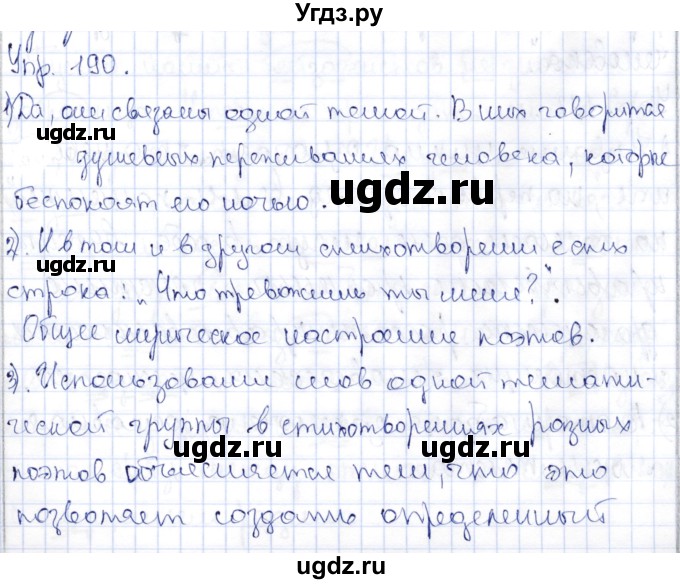 Угдз.ру
Упр. 190.
1) Да, они связаны одной темой. В них говорится
душевных переживаниях человека, которые
беспокоят его ночью.
2). И в том и в другом стихотворении есть
строка: „Что тревожишь ты меня?".
Общее лирическое настроение поэтов.
3). Использование слов одной темати-
ческой группы в стихотворениях разных
поэтов объясняется тем, что это
позволяет создать определенный
ugdz.ru
ugdz.ru
ugdz.ru
ugdz.ru
ugdz.ru
ugdz.ru
ugdz.ru
ugdz.ru
ugdz.ru
ugdz.ru
ugdz.ru
ugdz.ru
ugdz.ru